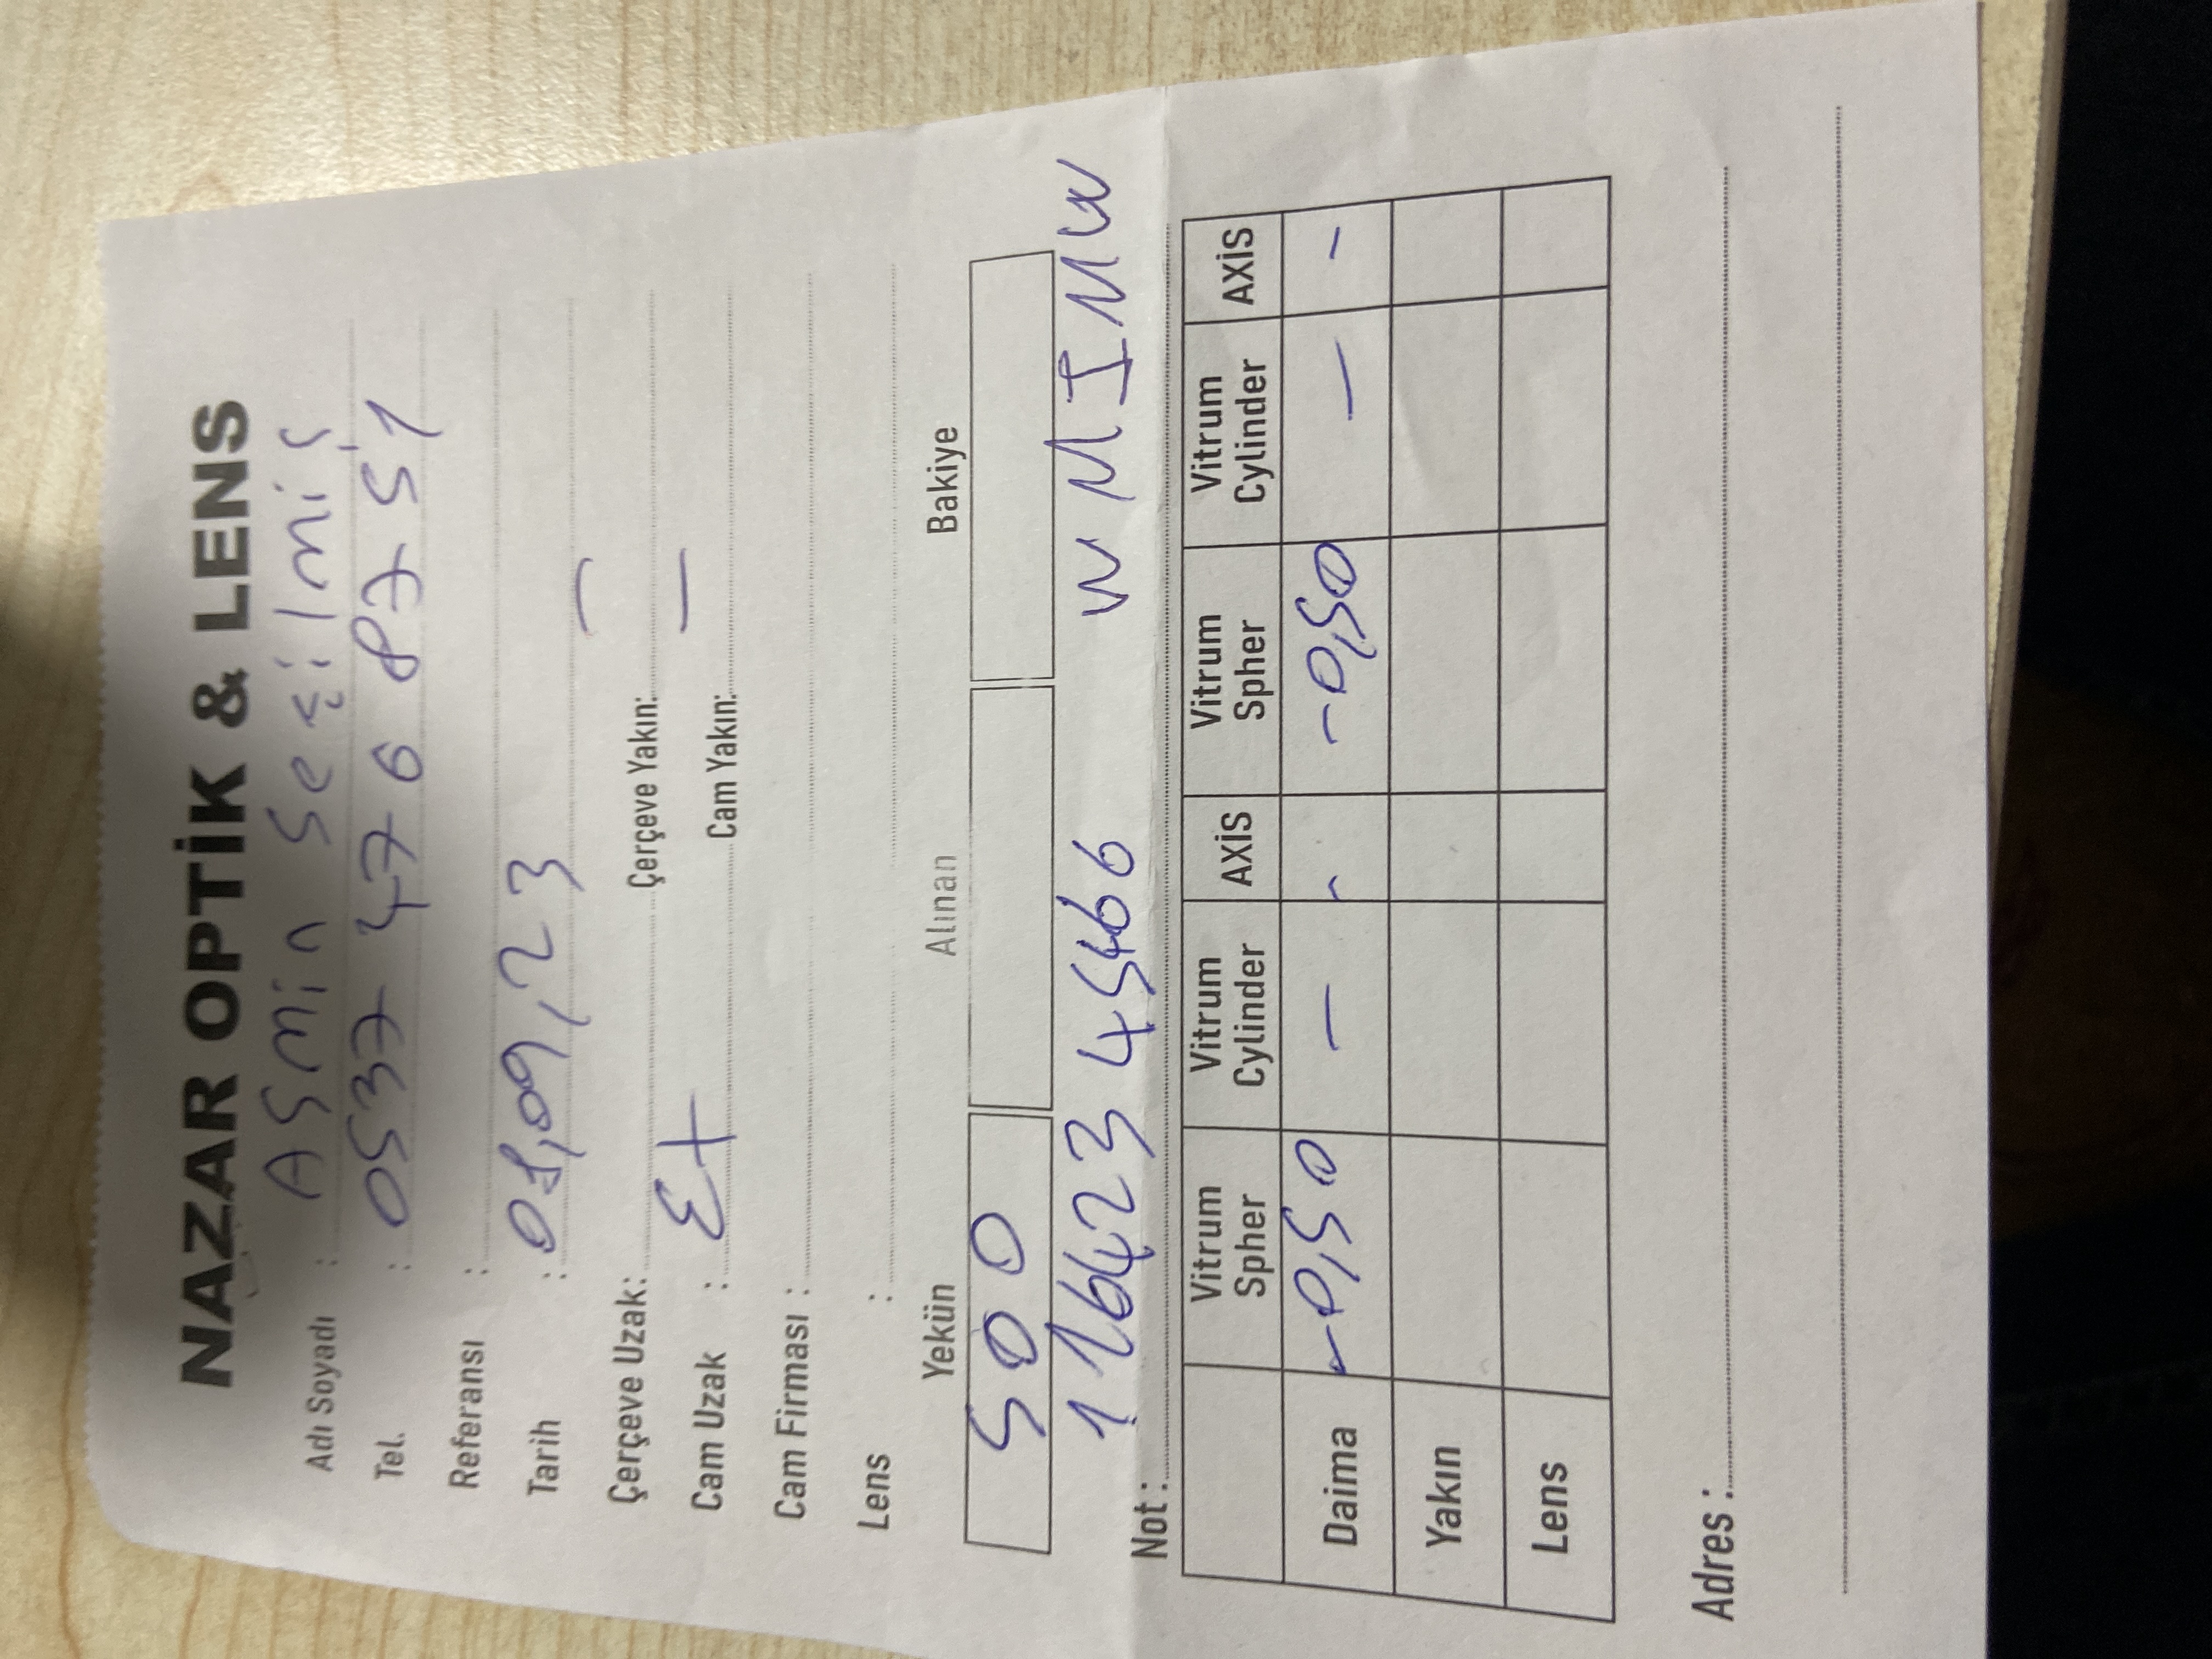 NAZAR OPTİK & LENS
Adı Soyadı : Asmin Seçilmiş
Tel. : 0537 476 87 51
Referansı :
Tarih : 01,09,23
Çerçeve Uzak: Çerçeve Yakın: —
Cam Uzak : Ex Cam Yakın: —
Cam Firması :
Lens :
Yekün Alınan Bakiye
500
Not :
Vitrum Spher Vitrum Cylinder AXİS Vitrum Spher Vitrum Cylinder AXİS
Daima -0,50 — - -0,50 — -
Yakın
Lens
Adres :